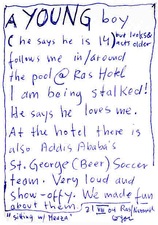 A YOUNG boy
(he says he is 14) but looks & acts older
follows me in/around
the pool @ Ras Hotel
I am being stalked!
He says he loves me.
At the hotel there is
also Addis Ababa's
St. George (Beer) Soccer
team. Very loud and
show-offy. We made fun
about them.
"sitting w/
21 VII 04 Ras